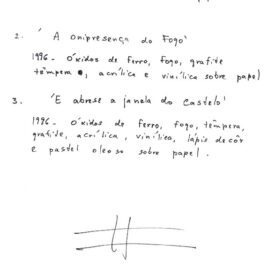 2. 'A onipresença do Fogo'
1996 - Óxidos de Ferro, fogo, grafite
têmpera, acrílica e vinílica sobre papel
3. 'E abrese a janela do Castelo'
1996 - Óxidos de Ferro, fogo, têmpera,
grafite, acrílica, vinílica, lápis de côr
e pastel oleoso sobre papel.